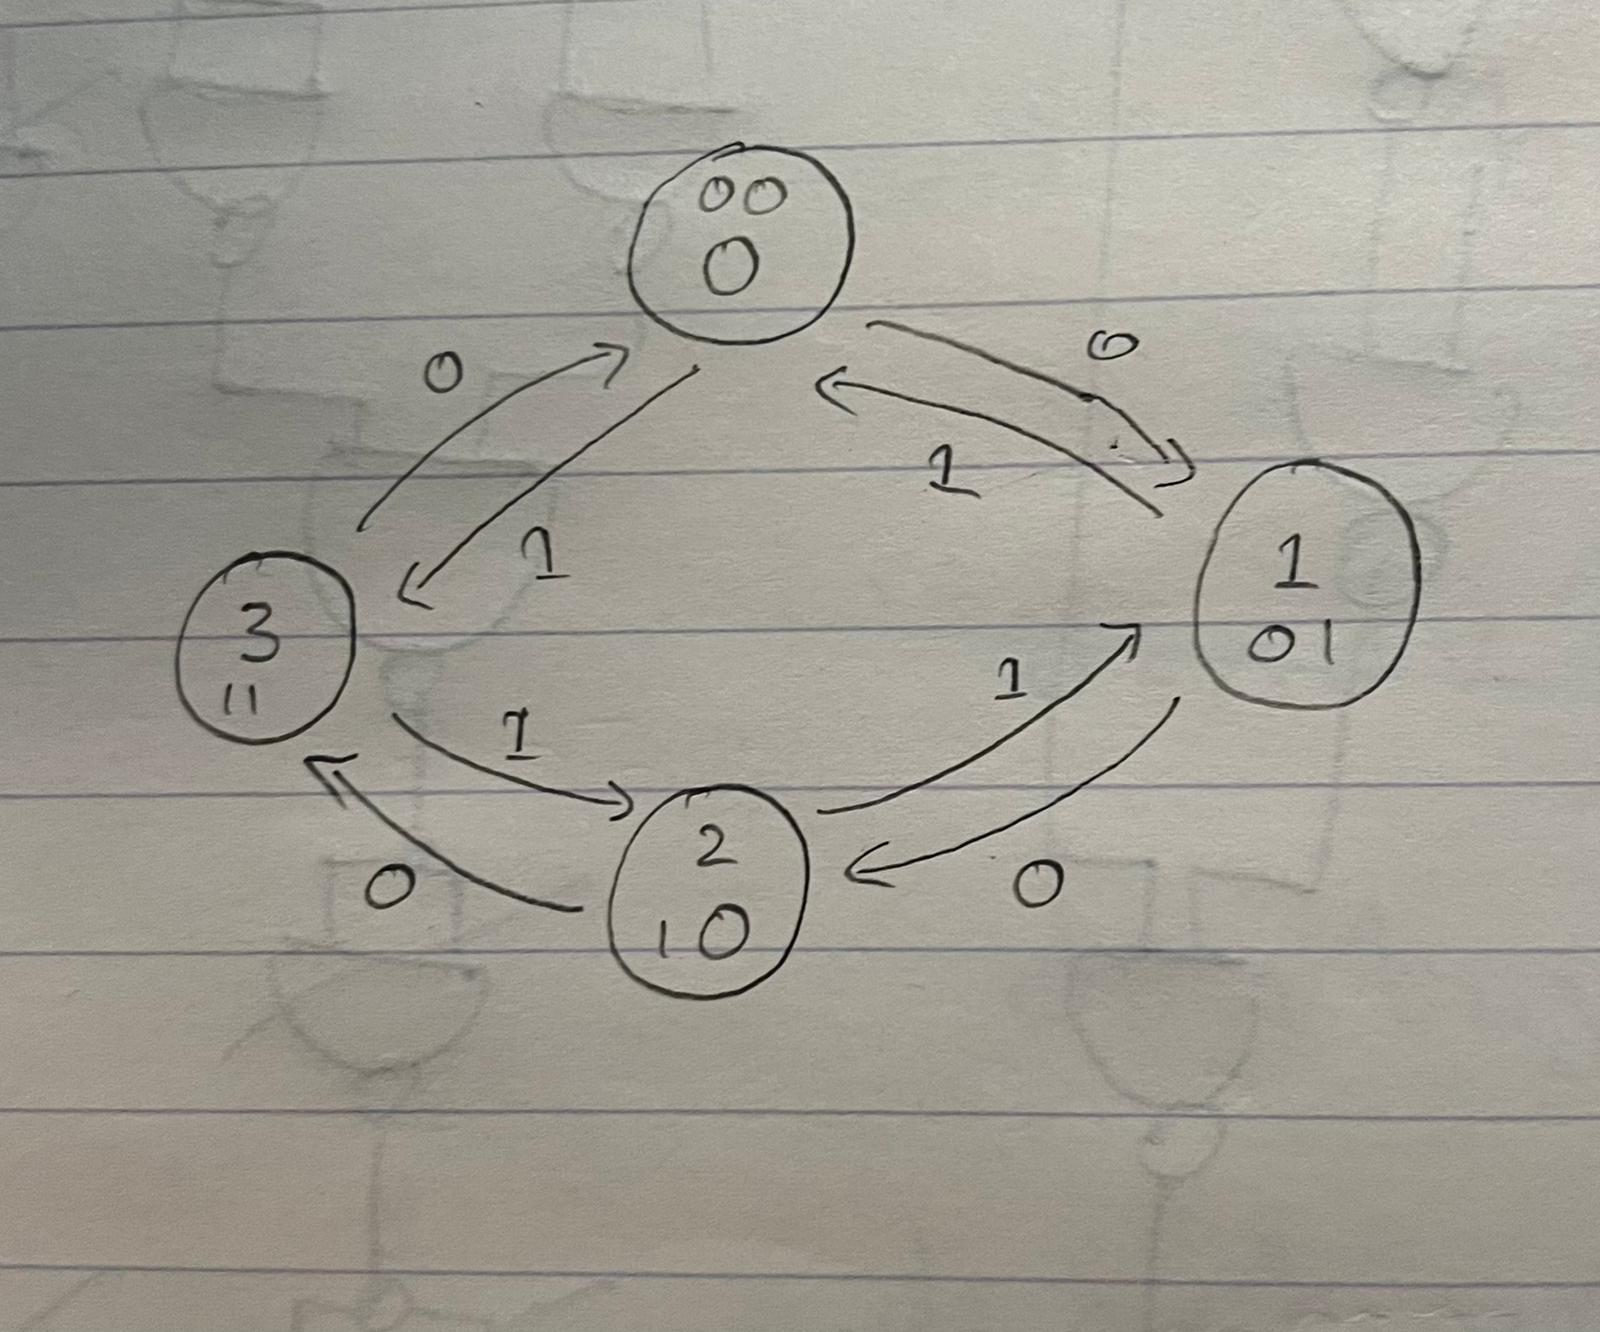 00
0
0
0
1
1
1
01
3
11
1
1
2
10
0
0